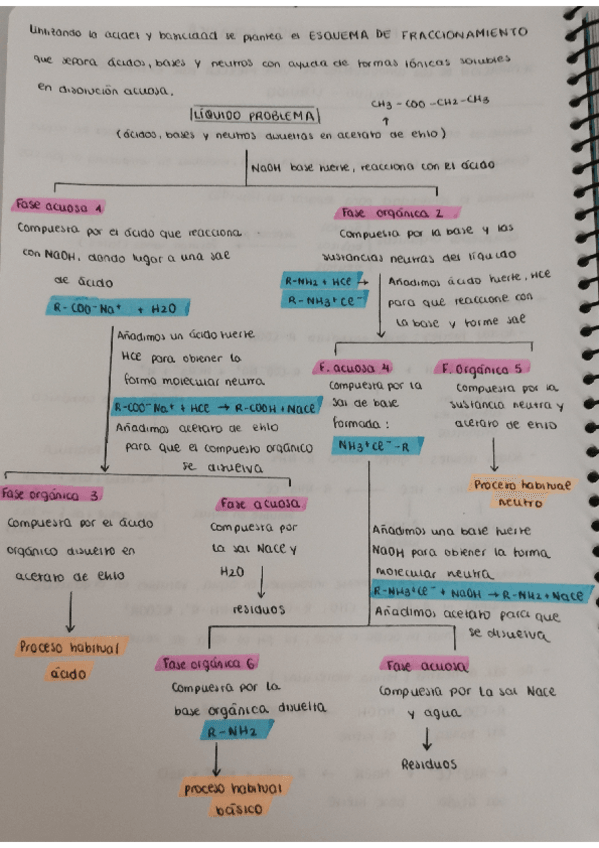 Utilizando la acidez y basicidad se plantea el ESQUEMA DE FRACCIONAMIENTO
que separa ácidos, bases y neutros con ayuda de formas iónicas solubles
en disolución acuosa.
CH3 - COO - CH2 - CH3
↑
LÍQUIDO PROBLEMA
(ácidos, bases y neutros disueltas en acetato de etilo)
NaOH base fuerte, reacciona con el ácido
Fase acuosa 1
Compuesta por el ácido que reacciona
con NaOH, dando lugar a una sal
de ácido
R-COO⁻Na⁺ + H2O
Fase orgánica 2
Compuesta por la base y las
sustancias neutras del líquido
R-NH2 + HCl →
R-NH3+Cl⁻
Añadimos ácido fuerte, HCl
para que reaccione con
la base y forme sal
Añadimos un ácido fuerte
HCl para obtener la
forma molecular neutra
R-COO⁻Na⁺ + HCl → R-COOH + NaCl
Añadimos acetato de etilo
para que el compuesto orgánico
se disuelva
F. acuosa 4
Compuesta por la
sal de base
formada:
NH3+Cl⁻-R
F. Orgánica 5
Compuesta por la
sustancia neutra y
acetato de etilo
Proceso habitual
neutro
Fase orgánica 3
Compuesta por el ácido
orgánico disuelto en
acetato de etilo
Proceso habitual
ácido
Fase acuosa
Compuesta por
la sal NaCl y
H2O
residuos
Añadimos una base fuerte
NaOH para obtener la forma
molecular neutra
R-NH3+Cl⁻ + NaOH → R-NH2 + NaCl
Añadimos acetato para que
se disuelva
Fase orgánica 6
Compuesta por la
base orgánica disuelta
R-NH2
proceso habitual
básico
Fase acuosa
Compuesta por la sal NaCl
y agua
Residuos